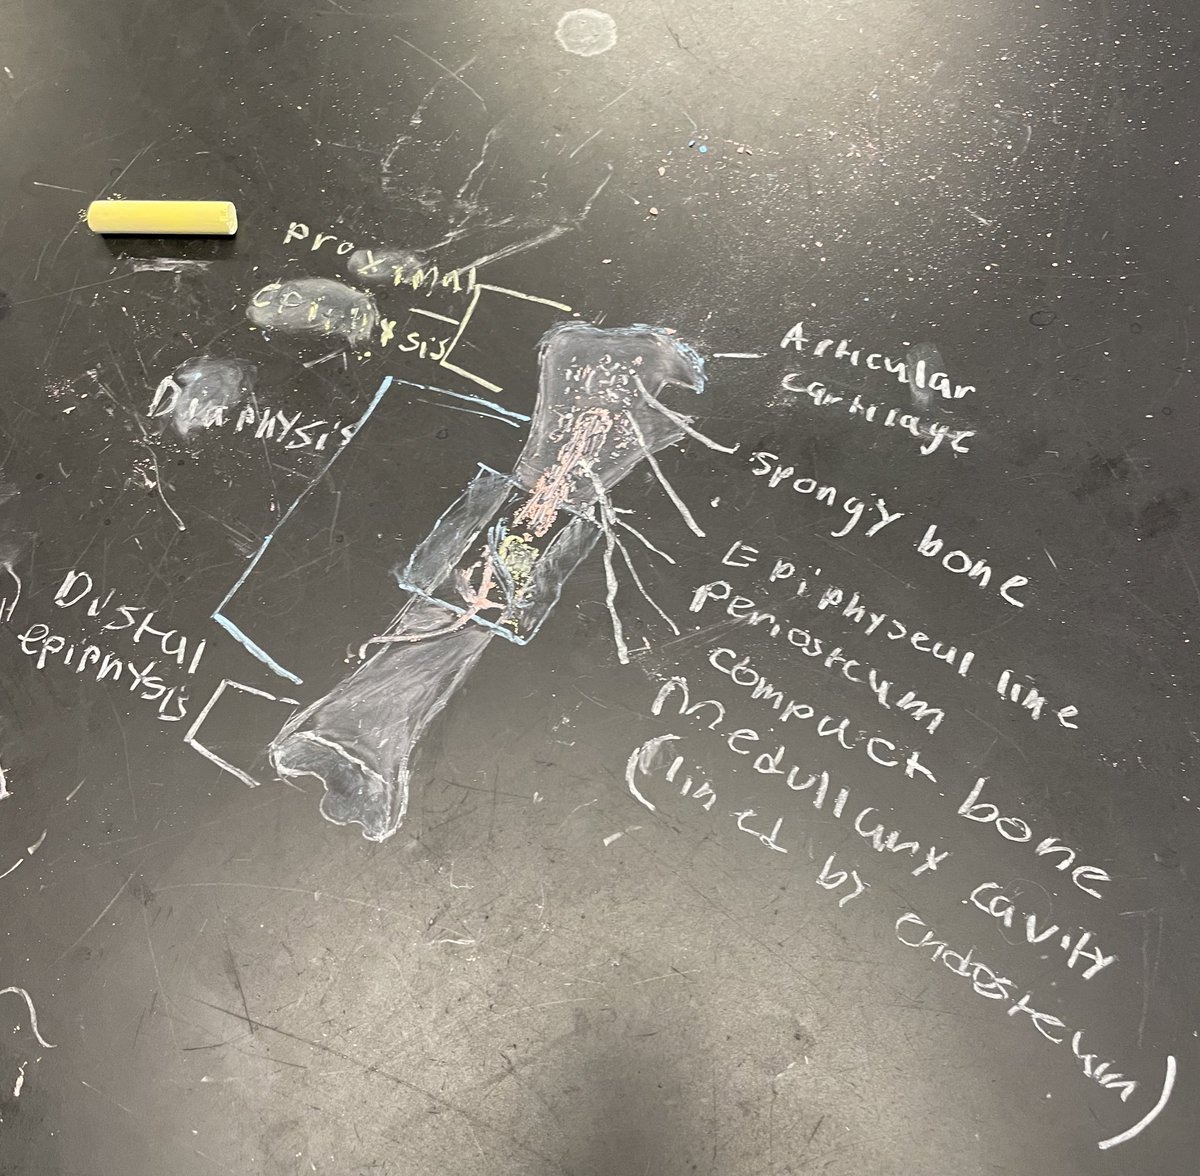 proximal
epiphysis
Diaphysis
Distal
epiphysis
Articular
cartilage
spongy bone
Epiphyseal line
periosteum
compact bone
Medullary cavity
(lined by endosteum)